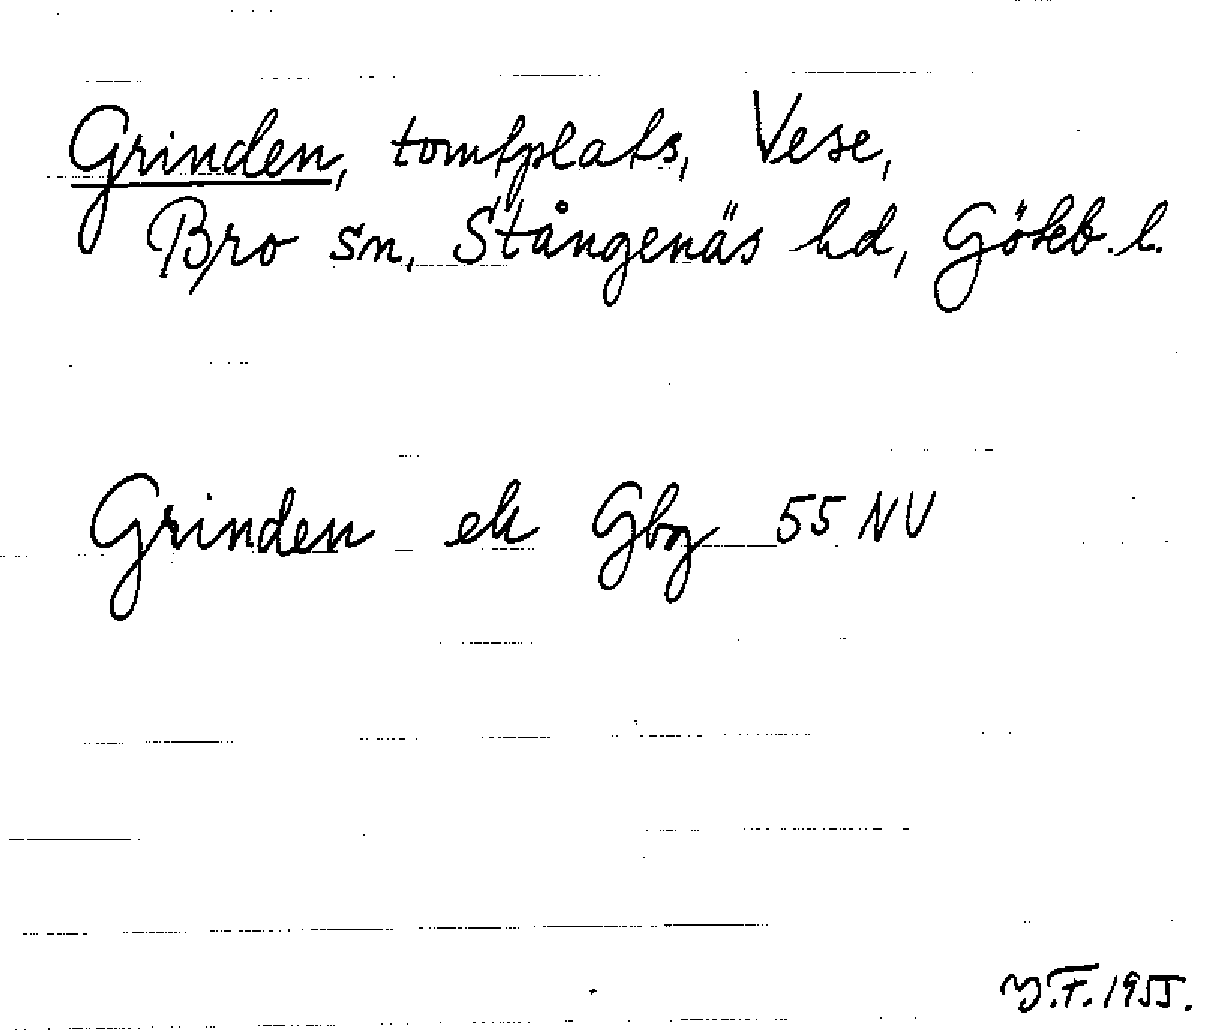 Grinden, tomtplats, Vese,
Bro sn, Stångenäs hd, Gökb. l.
Grinden ek Gbg 55 NV
Y.F. 1955.